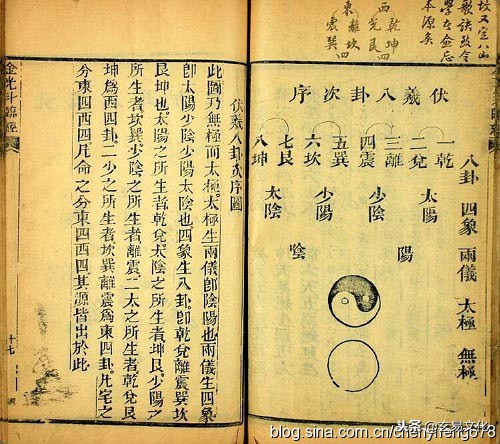 故又定八山
歌訣致令
本源矣
乾坤
兌艮
西四
離坎
震巽
東四
伏羲八卦次序
八卦 四象 兩儀 太極 無極
一乾
二兌
三離
四震
五巽
六坎
七艮
八坤
太陽
少陰
少陽
太陰
陽
陰
伏羲八卦次序圖
此圖乃無極而太極。太極生兩儀卽陰陽也兩儀生四象
卽太陽少陰少陽太陰也四象生八卦卽乾兌離震巽坎
艮坤也太陽之所生者乾兌太陰之所生者坤艮少陽之
所生者坎巽少陰之所生者離震二太之所生者乾兌艮
坤爲西四卦二少之所生者坎巽離震爲東四卦凡宅之
分東四西四凡命之分東四西四其源皆出於此
金光斗臨經
十七
头条@玄易文化
blog.sina.com.cn/chenyiheng678